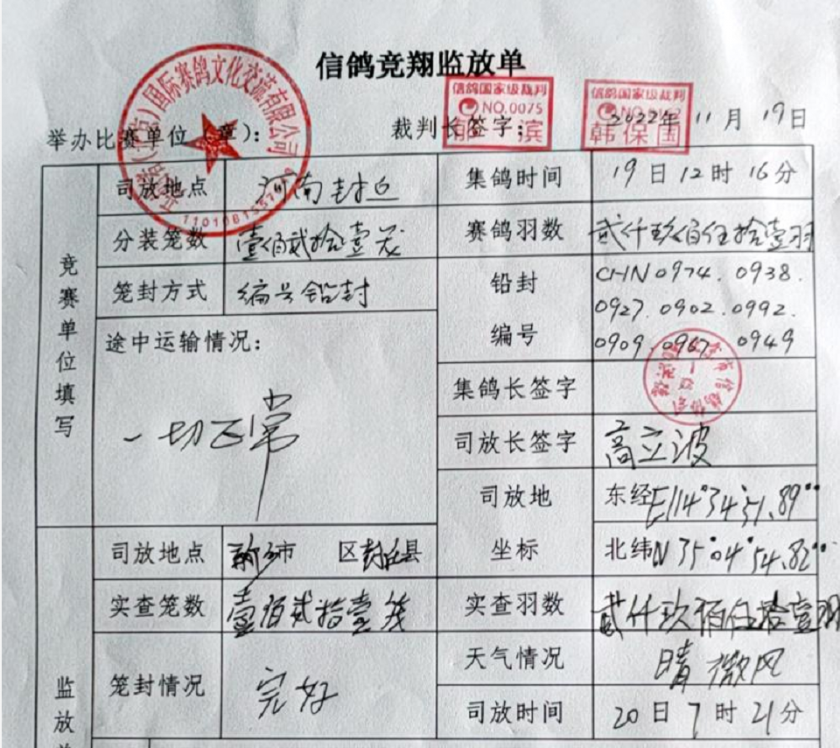 信鸽竞翔监放单
国际赛鸽文化交流有限公司
信鸽国家级裁判
NO.0075
滨
信鸽国家级裁判
NO.
韩保国
举办比赛单位(章): 裁判长签字: 2022年11月19日
竞赛单位填写
司放地点 河南封丘 集鸽时间 19日12时16分
分装笼数 壹佰贰拾壹笼 赛鸽羽数 贰仟玖佰伍拾壹羽
笼封方式 编号铅封 铅封编号 CHN0974.0938.
0927.0902.0992.
0909.0967. 0949
途中运输情况:
一切正常
集鸽长签字
司放长签字 高立波
司放地坐标 东经E114°34'51.89"
北纬N35°04'54.82"
监放
司放地点 新乡市 区封丘县
实查笼数 壹佰贰拾壹笼 实查羽数 贰仟玖佰伍拾壹羽
笼封情况 完好 天气情况 晴 微风
司放时间 20日7时21分